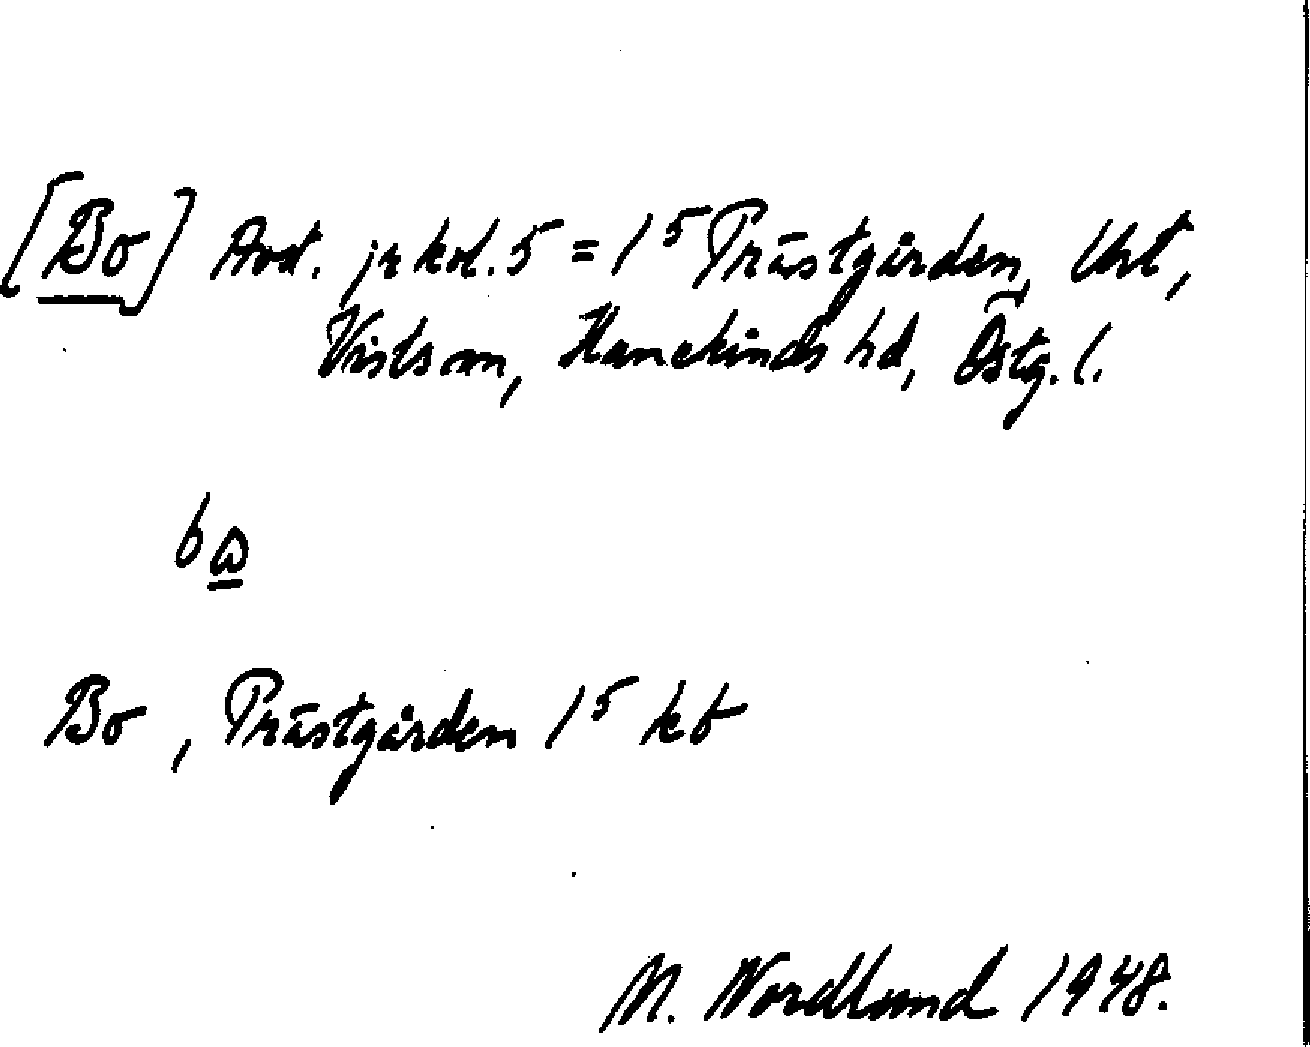 [Bo] Avst. jr kol. 5 = 1⁵ Prästgården, Urt,
Vistsom, Hanekinds hd, Östg. l.
bω
Bo, Prästgården 1⁵ kb
M. Nordlund 1948.